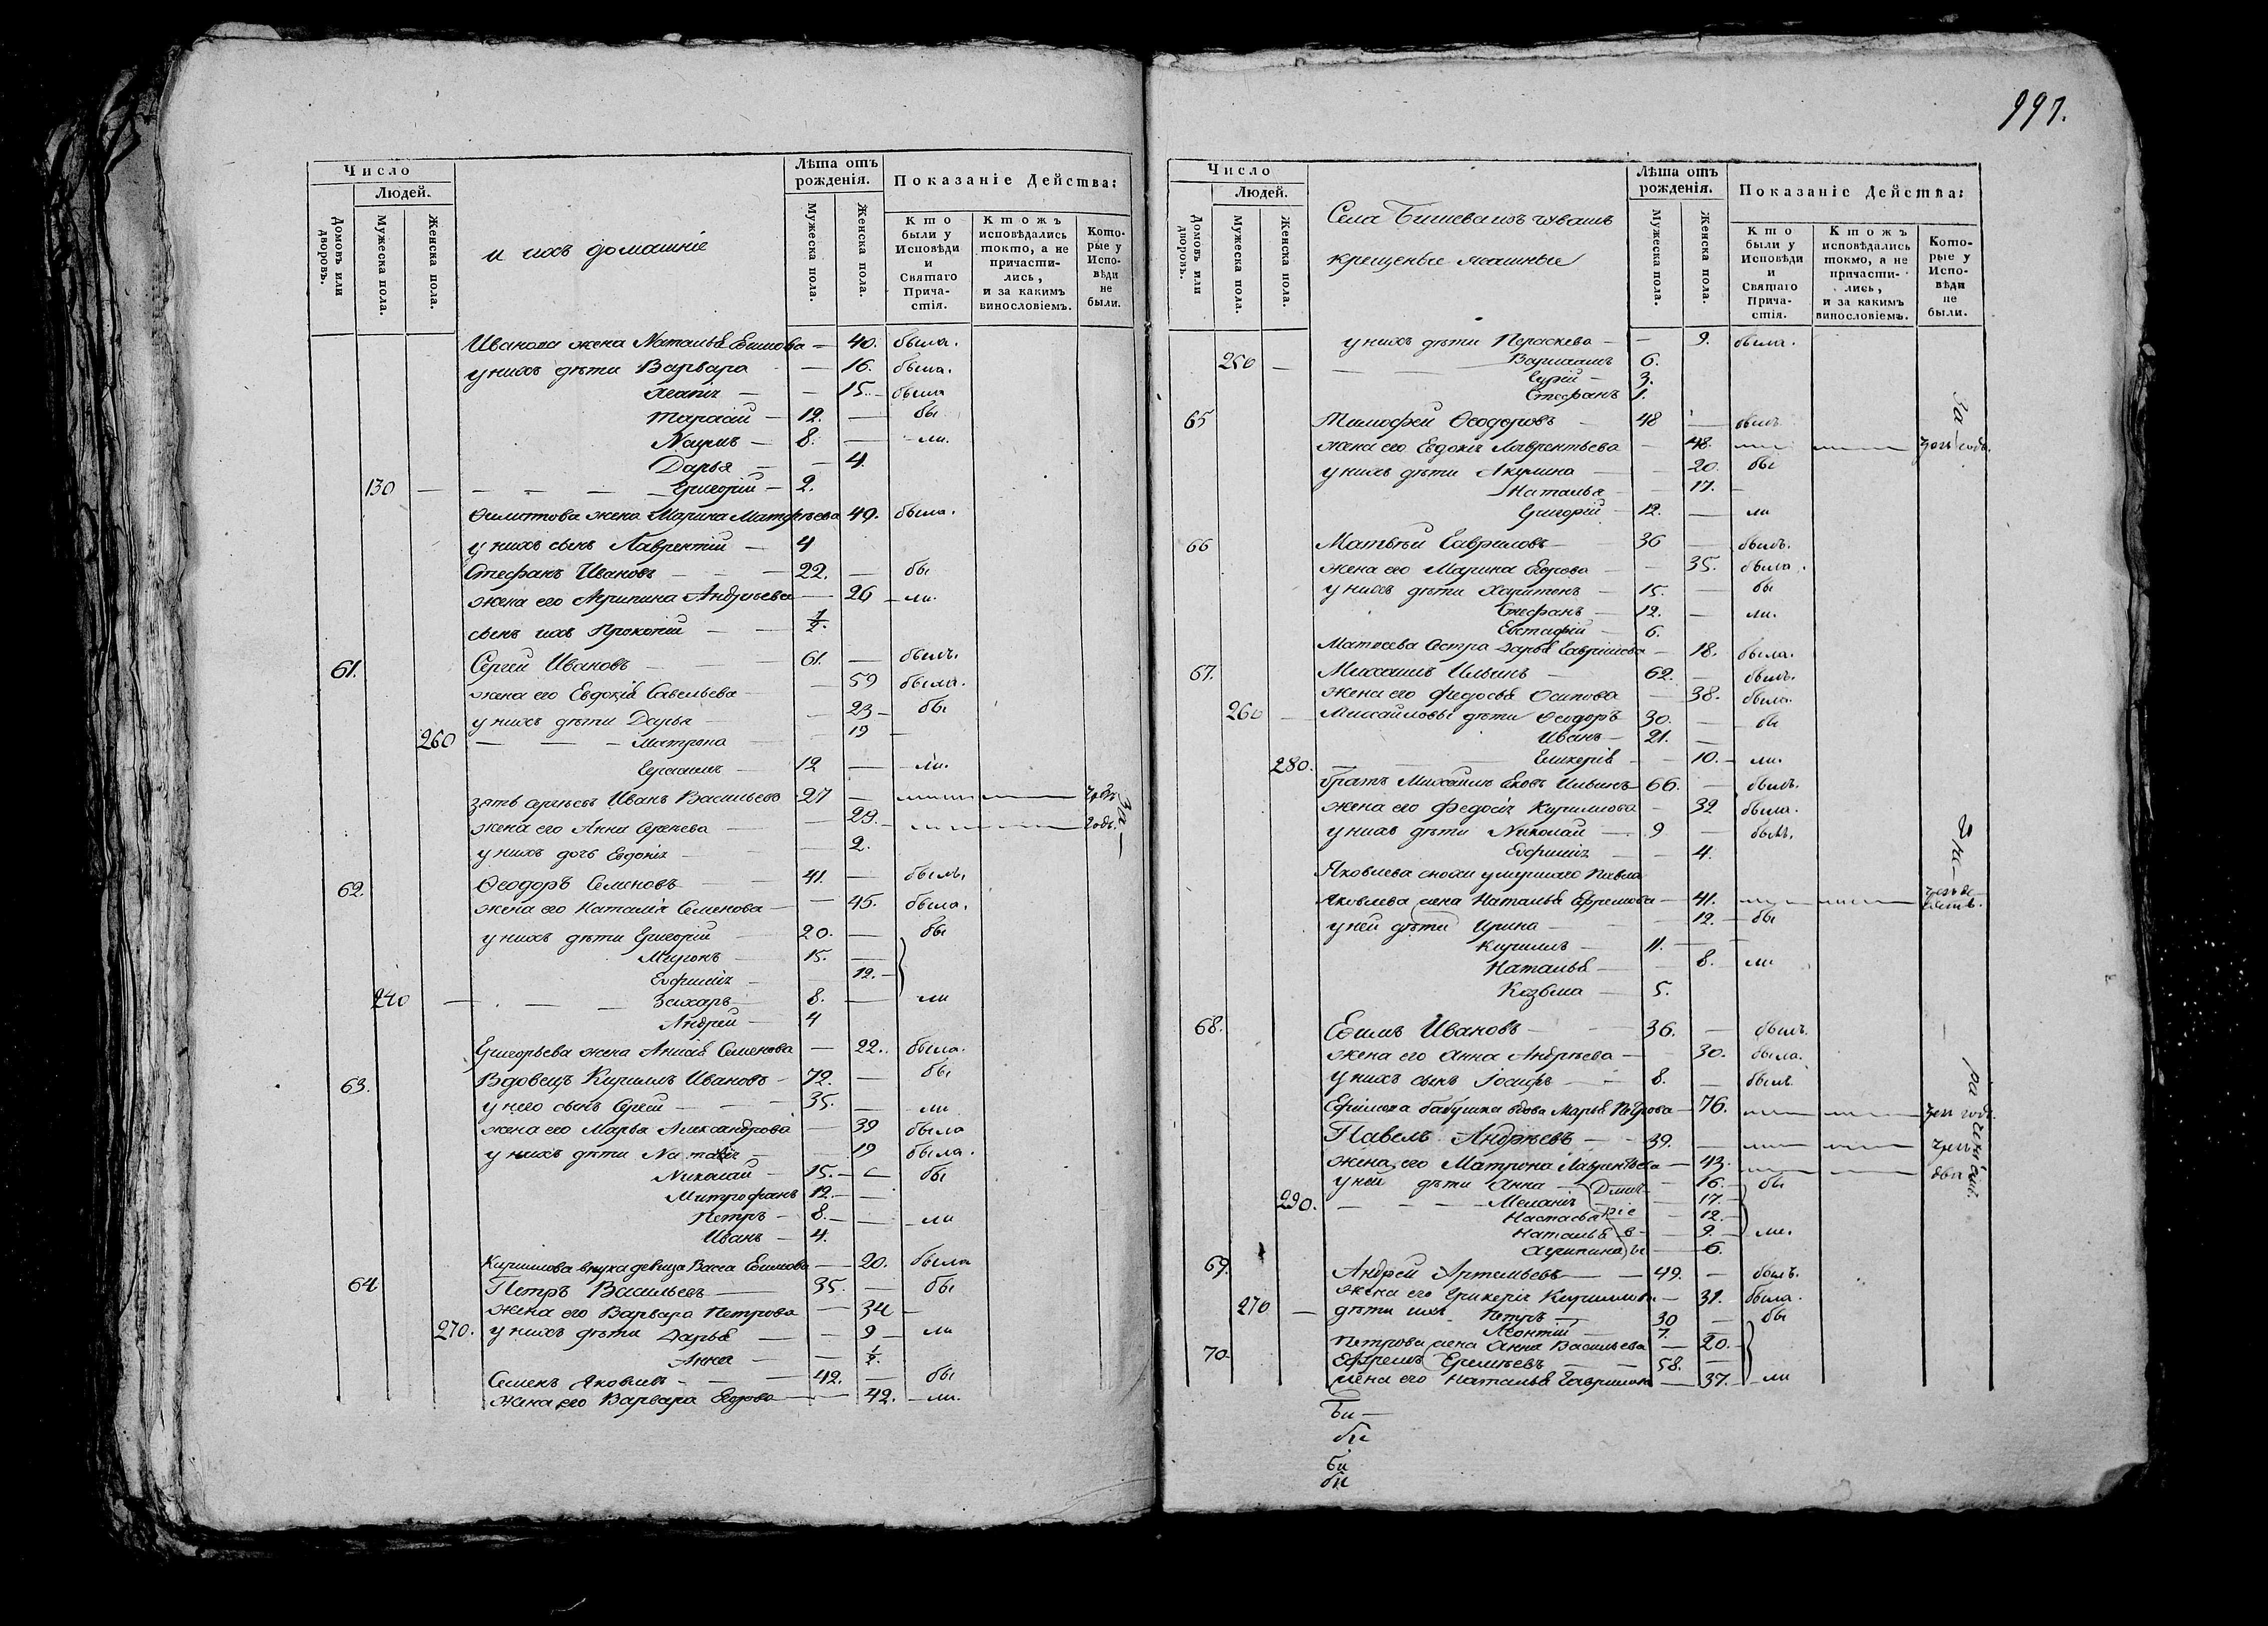 991.
Число
Людей.
Домовъ или дворовъ.
Мужеска пола.
Женска пола.
и ихъ домашніе
Лѣта отъ рожденія.
Мужеска пола.
Женска пола.
Показаніе Действа:
Кто были у Исповѣди и Святаго Причастія.
Ктожъ исповѣдались токмо, а не причастились, и за какимъ винословіемъ.
Которые у Исповѣди не были.
Иванова жена Наталья Ефимова — 40. была.
у нихъ дѣти Варвара — 16. была.
15. была
Тарасій — 12. — бы
Наумъ — 8. — ли.
Дарья — 4.
130 — Григорій — 2.
Филипова жена Марина Матфѣева 49. была.
у нихъ сынъ Лаврентій — 4
Стефанъ Ивановъ — 22. — бы
жена его Агрипина Андрѣева — 26 — ли.
сынъ ихъ Прокопій — ½.
61. Сергей Ивановъ — 61. — былъ.
жена его Евдокія Савельева — 59 была.
у нихъ дѣти Дарья — 23 — бы
260 — Матрона — 19 —
Герасимъ 12 — ли.
зять Иванъ Васильевъ 27 —
жена его Анна Сергѣева — 29. — годъ.
у нихъ дочь Евдокія — 2.
за —
62. Ѳеодоръ Семеновъ — 41. — былъ.
жена его Наталія Семенова — 45. была.
у нихъ дѣти Григорій — 20. — бы
Миронъ — 15. —
Евфимія — 12. —
240 — Захаръ — 8. — ли
Андрей — 4
Григорьева жена Анисія Семенова — 22. была.
63. Вдовецъ Кириллъ Ивановъ — 72. — бы
у него сынъ Сергей — 35. — ли
жена его Марья Александрова — 39 была
у нихъ дѣти Наталія — 19 была.
Николай — 15. — бы
Митрофанъ 12. —
Петръ — 8. — ли
Иванъ — 4.
Кирилова внука девица Васса Ефимова — 20. была
64 Петръ Васильевъ — 35. — бы
жена его Варвара Петрова — 34 —
270. у нихъ дѣти Дарья — 9 — ли
Анна — ½.
Семенъ Яковлевъ — 42. — бы
жена его Варвара Егорова — 42. — ли.
Число
Людей.
Домовъ или дворовъ.
Мужеска пола.
Женска пола.
Села Бишева изъ чувашъ
крещеные ясашные
Лѣта отъ рожденія.
Мужеска пола.
Женска пола.
Показаніе Действа:
Кто были у Исповѣди и Святаго Причастія.
Ктожъ исповѣдались токмо, а не причастились, и за какимъ винословіемъ.
Которые у Исповѣди не были.
у нихъ дѣти Пераскева — 9. была.
250 — Варлаамъ 6.
Гурій — 3.
Стефанъ 1.
65 Тимофей Ѳеодоровъ — 48 — былъ
за —
жена его Евдокія Лаврентьева — 48. годъ.
у нихъ дѣти Акулина — 20. бы
Наталья — 17. —
Григорій — 12. — ли
66 Матвѣй Гавриловъ — 36 — былъ.
жена его Марина Егорова — 35. была.
у нихъ дѣти Харитонъ — 15. — бы
Стефанъ — 12. — ли.
Евстафій — 6.
Матвеева Сестра Дарья Гаврилова — 18. была.
67. Михаилъ Ильинъ — 62. — былъ.
жена его Федосья Осипова — 38. была.
260 — Михайловы дѣти Ѳеодоръ 30. — бы
Иванъ — 21. —
280. Гликерія — 10. — ли.
братъ Михаилъ Ильинъ 66. — былъ.
жена его Федосія Кирилова — 32 была.
у нихъ дѣти Николай — 9 — былъ.
Евфимія — 4.
Яковлева сноха умершаго Павла
Яковлева жена Наталья Ефремова — 41.
у ней дѣти Ирина — 12. — бы
Кирилъ — 11. —
Наталья — 8. — ли
Козьма — 5.
68. Ефимъ Ивановъ — 36. — былъ.
жена его Анна Андрѣева — 30. была.
у нихъ сынъ Іосифъ — 8. — былъ.
Ефимова бабушка вдова Марья Петрова — 76. годъ.
Павелъ Андрѣевъ — 39. —
жена его Матрона Лаврентьева — 43. — два
у ней дѣти Анна — 16. — бы
290. — Меланія — 17. —
Настасья — 12. —
Наталья — 9. — ли.
Агрипина — 6.
69. Андрей Артемьевъ — 49. — былъ.
жена его Гликерія Кирилова — 31. была.
270 — дѣти ихъ Петръ — 30 — бы
Леонтій — 7.
Петрова жена Анна Васильева — 20. —
70 Ефремъ Еремѣевъ — 58. —
жена его Наталья Гаврилова — 37. — ли
Би —
би
Би
би